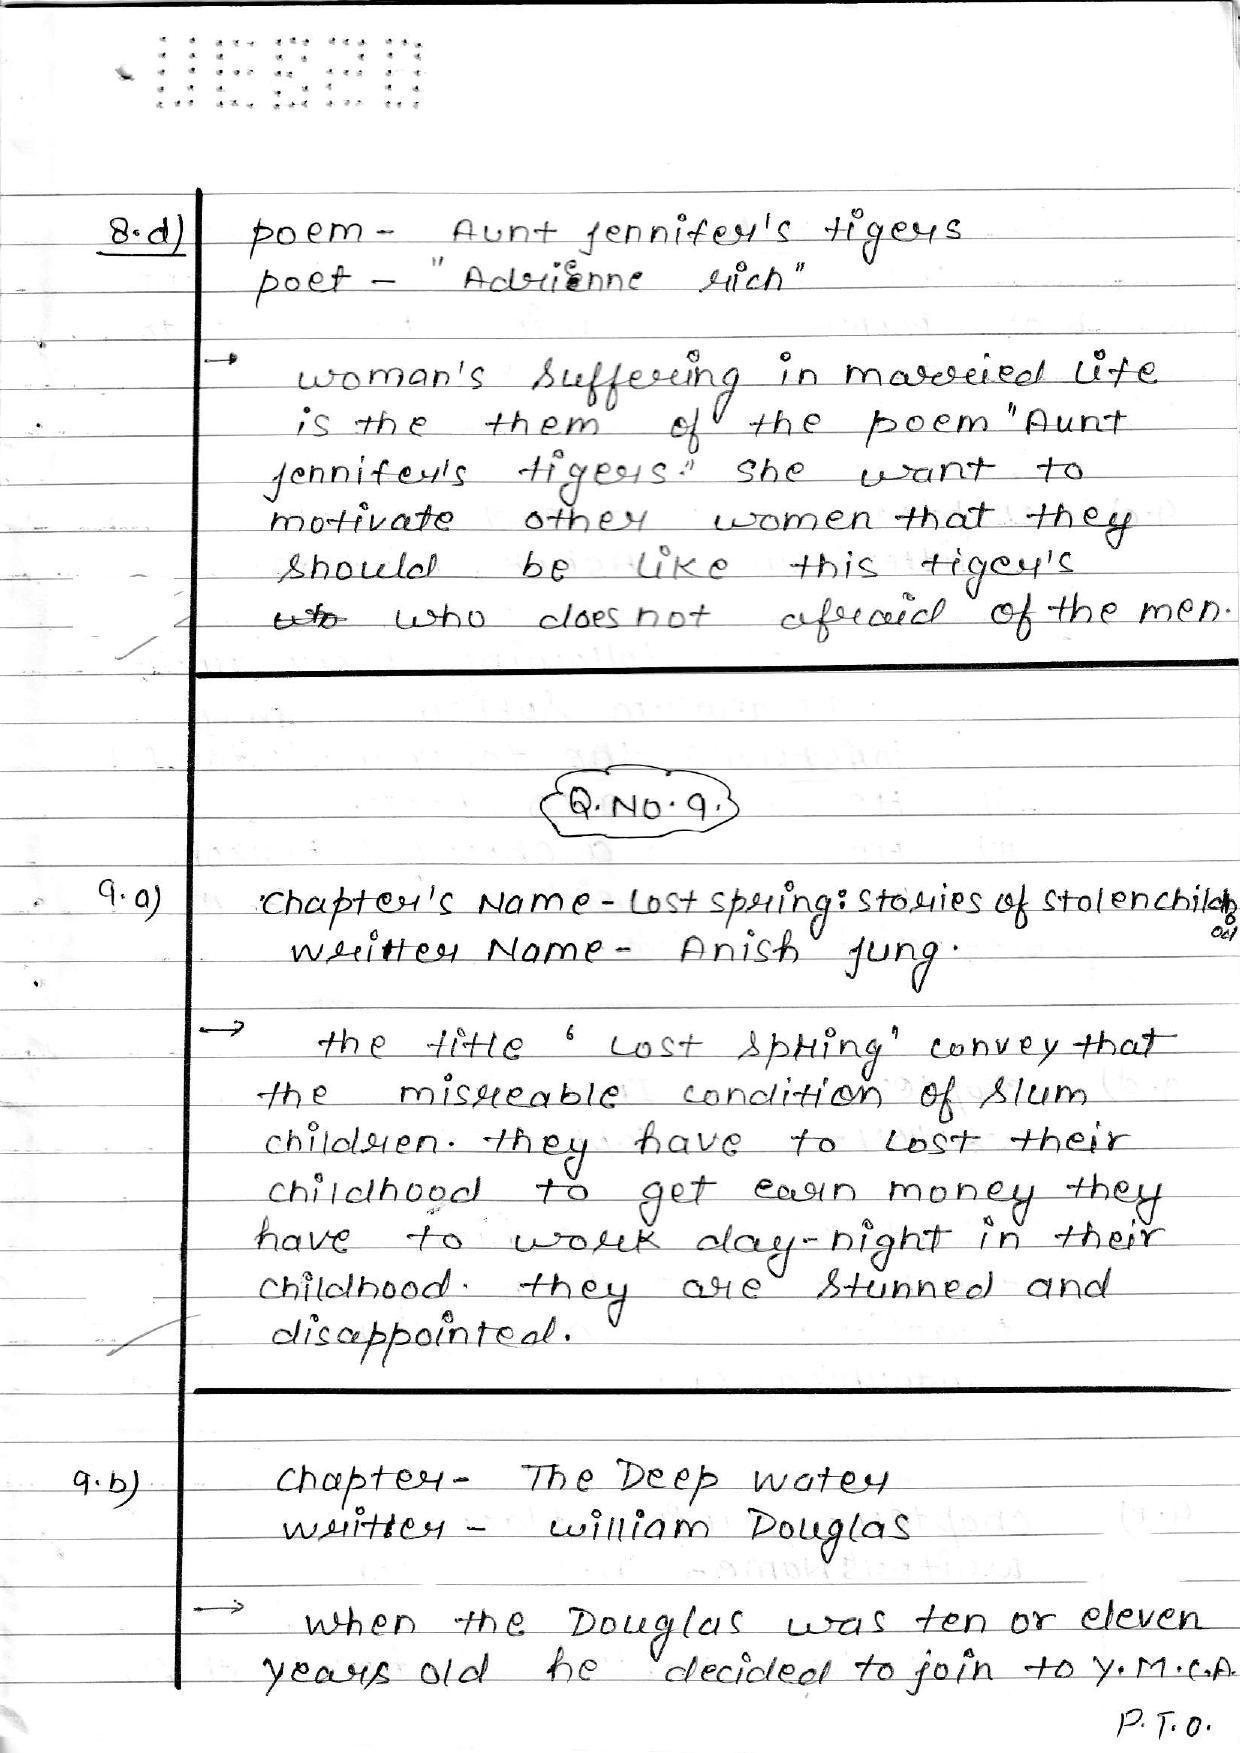 8.d) poem - Aunt Jennifer's tigers
poet - "Adrienne rich"
→ woman's suffering in married life
is the them of the poem "Aunt
Jennifer's tigers." She want to
motivate other women that they
should be like this tiger's
who does not afraid of the men.
Q.No.9.
9.a) Chapter's Name - Lost spring: stories of stolen child
hood
writter Name - Anish Jung.
→ the title 'Lost spring' convey that
the misreable condition of slum
children. they have to lost their
childhood to get earn money they
have to work day-night in their
childhood. they are stunned and
disappointed.
9.b) Chapter - The Deep water
writter - William Douglas
→ When the Douglas was ten or eleven
years old he decided to join to Y.M.C.A.
P.T.O.